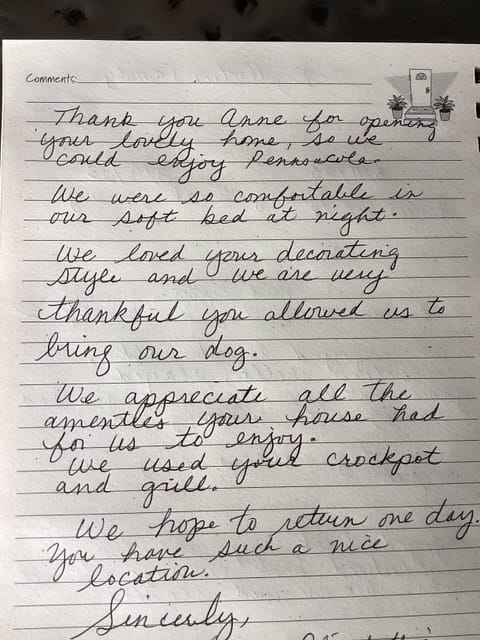 Comments:
Thank you Anne for opening
your lovely home, so we
could enjoy Pennsacola.
We were so comfortable in
our soft bed at night.
We loved your decorating
style and we are very
thankful you allowed us to
bring our dog.
We appreciate all the
amenties your house had
for us to enjoy.
We used your crockpot
and grill.
We hope to return one day.
You have such a nice
location.
Sincerly,